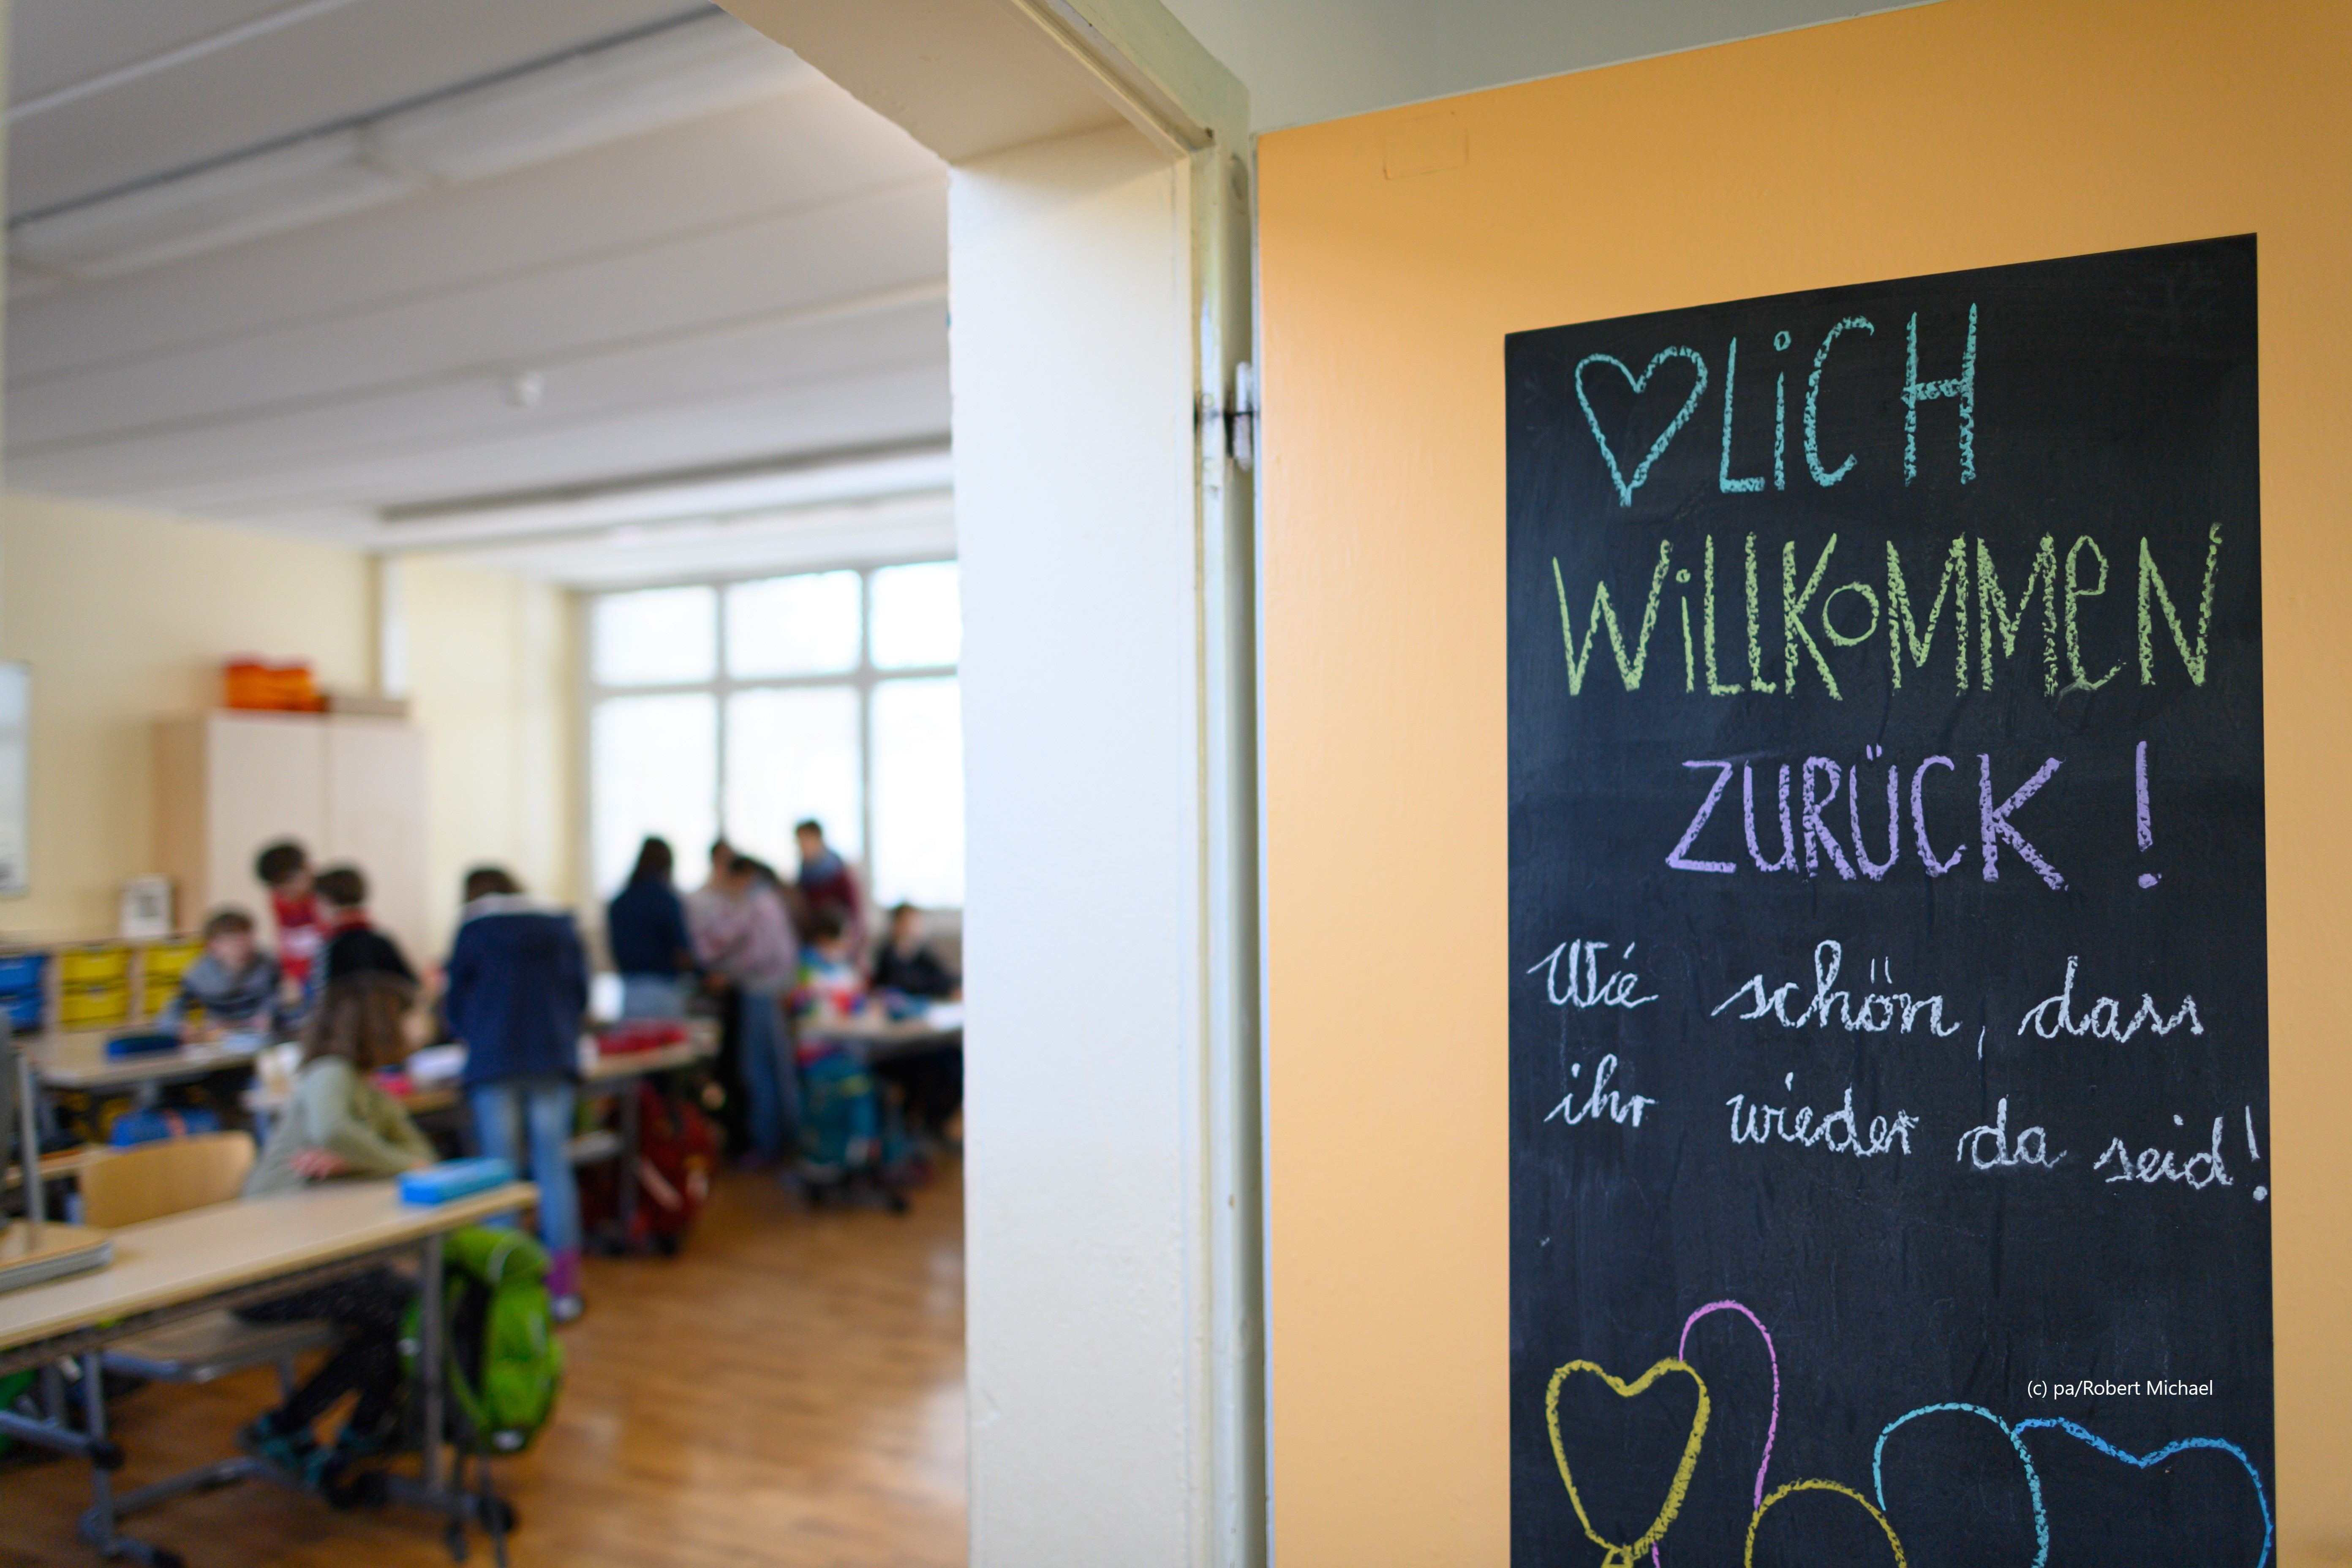 ♡LiCH
WiLLKOMMEN
ZURÜCK!
Wie schön, dass
ihr wieder da seid!
(c) pa/Robert Michael